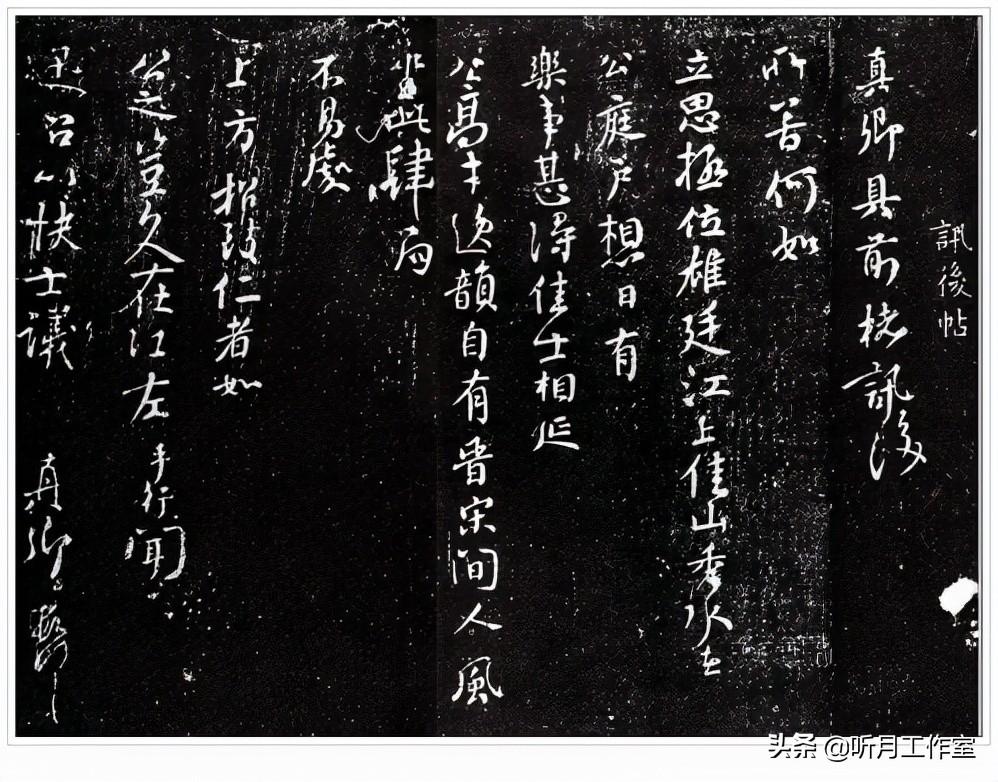 訊後帖
真卿具前楮訊後
所苦何如
立思極位雄廷江上佳山秀水在
公庭戶想日有
樂事甚得佳士相延
公高才逸韻自有晋宋間人風
肆局
不易處
上方招致仁者如
公之豈久在江左 行聞
迅召以快士議 真卿
头条 @听月工作室